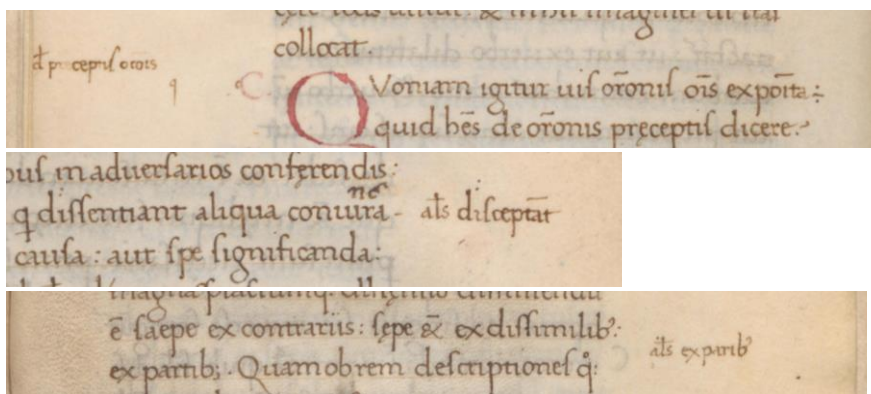 collocat.
d̄ preceptıſ or̄oıs
QVoniam igitur uiſ or̄oniſ oı̄s expoı̄ta:
quid hēs de or̄onis pręceptiſ dicere.
buſ in aduerſarios conferendis:
q̄ diſſentiant aliqua coniūrā
nē
al̄s diſceptāt
cauſa: aut ſpe ſignificanda:
ē ſaepe ex contrariis: ſępe & ex diſſimilib᾽:
ex partib;. Quamobrem deſcriptioneſ q̊:
al̄s ex parib᾽